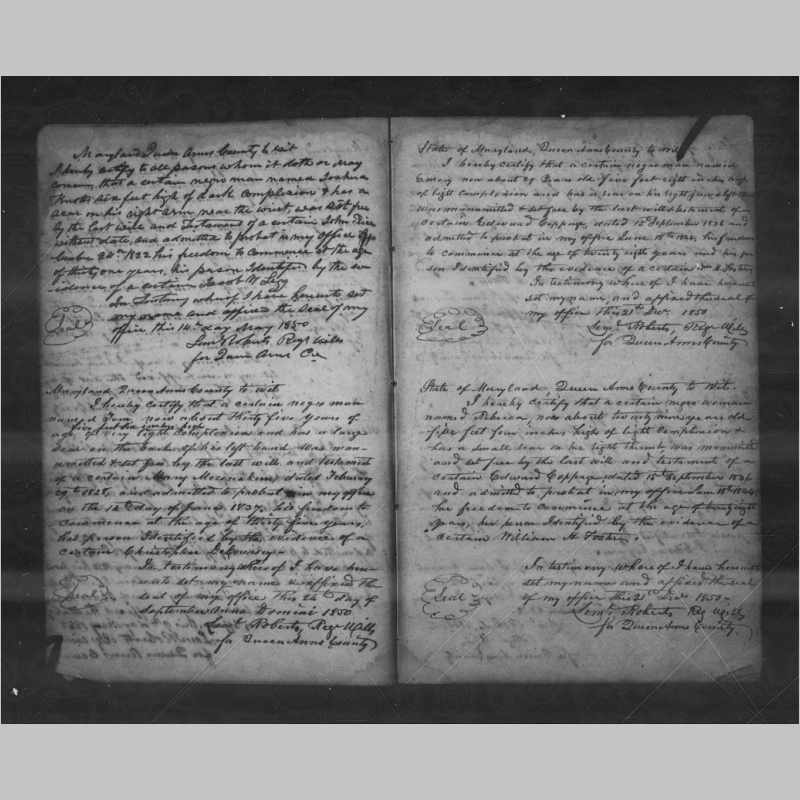 Maryland Queen Anns County to wit
I hereby certify to all persons whom it doth or May
concern, that a certain negro man named Joshua
six feet high of dark Complexion & has a
scar on his right arm near the wrist, was set free
by the last will and Testament of a certain John
without date, and admitted to probat in my office
24th 1822 his freedom to commence at the age
of thirty one years, his person Identified by the ev
idence of a certain Jacob W
In Testimony whereof I have hereunto set
my name and affixed the seal of my
office this 14th day May 1850
Seal
Roberts Regr Wills
for Queen Anns Co
Maryland Queen Anns County to wit
I hereby certify that a certain negro man
named now about Thirty five years of
five feet six inches high
age of very light complexion and has a large
scar on the back of his left hand was man-
umitted & set free by the last will and testament
of a certain Mary dated February
1825, and admitted to probat in my office
on the 12th day of June 1837, his freedom to
commence at the age of thirty five years,
his person Identified by the evidence of a
certain Christopher
In testimony whereof I have here
unto set my name & affixed the
seal of my office this 24th day of
September Anno Domini 1850
Seal
Roberts, Regr Wills
for Queen Anns County
State of Maryland, Queen Anns County to wit
I hereby certify that a certain negro man named
now about 28 years old five feet eight inches high
of light complexion and has a scar on his right
was manumitted & set free by the last will & testament of a
certain Edward Coppage dated 15 September 1826 and
admitted to probat in my office June 18th 1828, his freedom
to commence at the age of twenty eight years and his per
son Identified by the evidence of a certain
In testimony whereof I have hereunto
set my name, and affixed the seal of
my office this 21st Decr 1850
Seal
Roberts, Regr Wills
for Queen Anns County
State of Maryland Queen Anns County to Wit.
I hereby certify that a certain negro woman
named Rebecca now about twenty nine years old
five feet four inches high of light complexion &
has a small scar on her right thumb was manumitted
and set free by the last will and testament of a
certain Edward Coppage dated 15th September 1826
and admitted to probat in my office
her freedom to commence at the age of twenty eight
years, her person Identified by the evidence of a
certain William H
In testimony whereof I have hereunto
set my name and affixed the seal
of my office this 21st Decr 1850
Seal
Roberts Reg Wills
for Queen Anns County